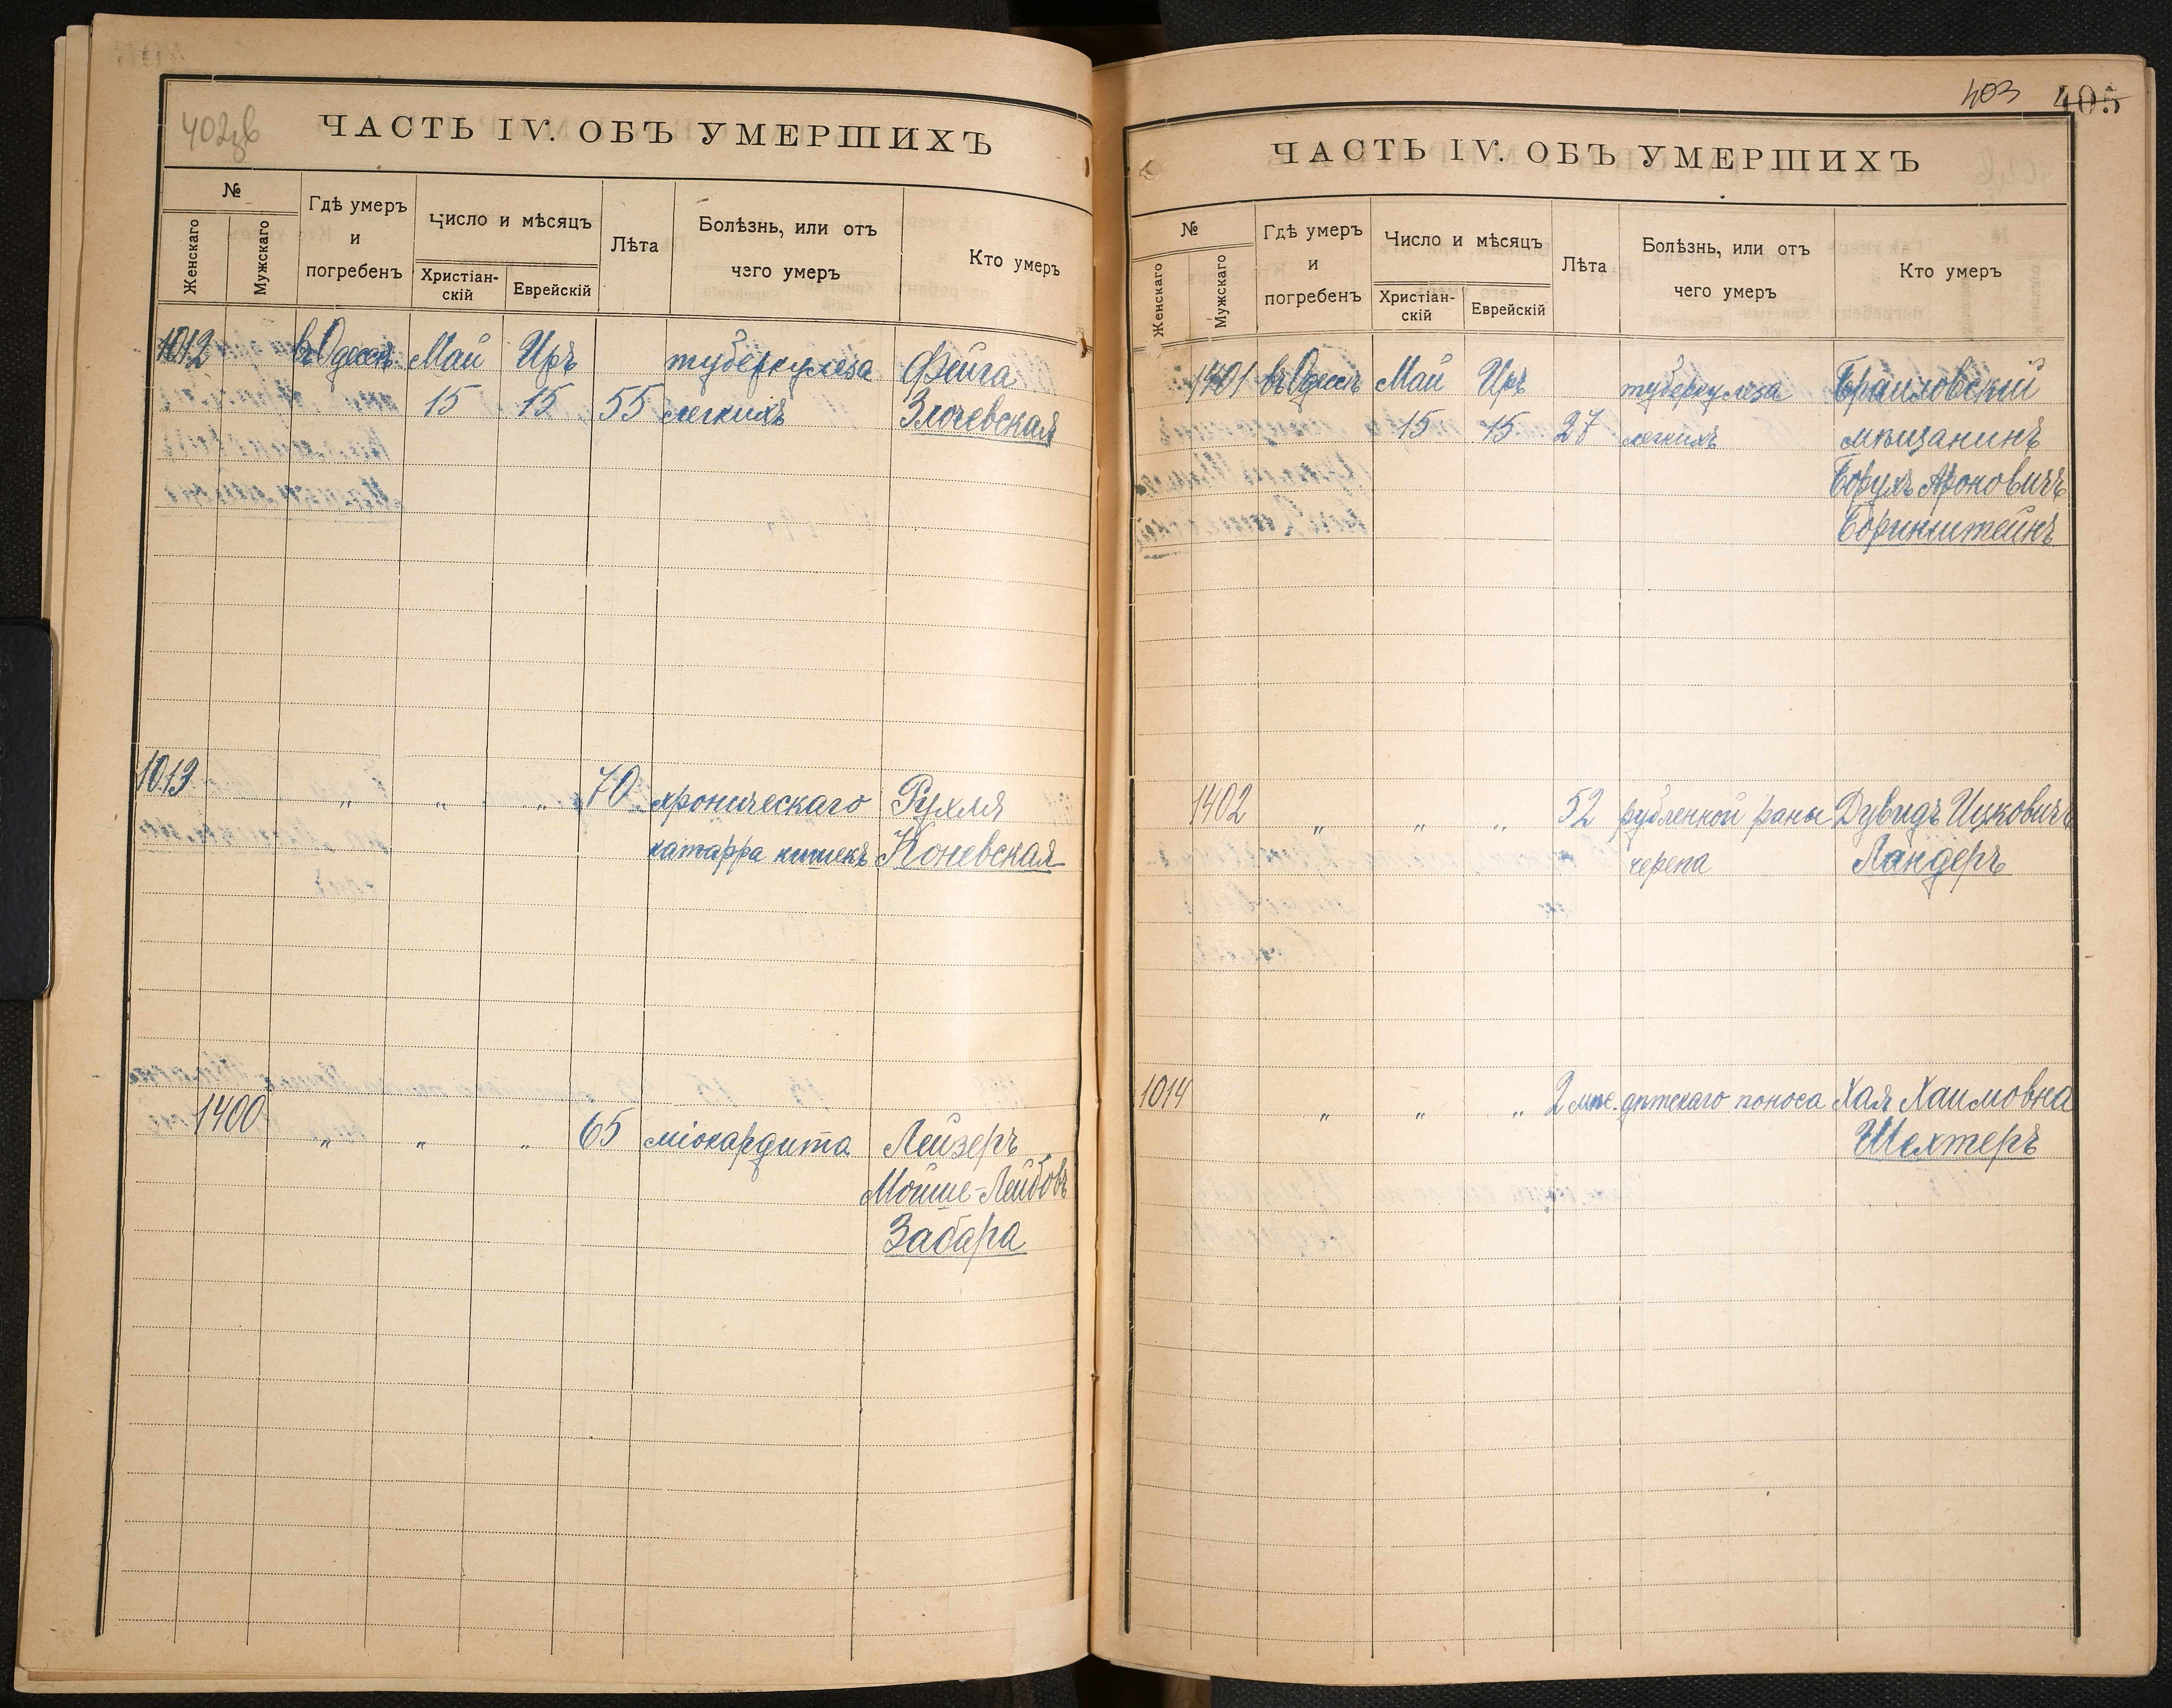 402зв
ЧАСТЬ IV. ОБЪ УМЕРШИХЪ
№
Женскаго
Мужскаго
Гдѣ умеръ
и
погребенъ
Число и мѣсяцъ
Христіан-
скій
Еврейскій
Лѣта
Болѣзнь, или отъ
чего умеръ
Кто умеръ
1012 въ Одессѣ Май Иръ туберкулеза Фейга
15 15 55 легкихъ Злочевская
1013 " " " 70 хроническаго Рухля
катарра кишекъ Коневская
1400 " " " 65 міокардита Лейзеръ
Мойше-Лейбовъ
Забара
403 405
ЧАСТЬ IV. ОБЪ УМЕРШИХЪ
№
Женскаго
Мужскаго
Гдѣ умеръ
и
погребенъ
Число и мѣсяцъ
Христіан-
скій
Еврейскій
Лѣта
Болѣзнь, или отъ
чего умеръ
Кто умеръ
1401 въ Одессѣ Май Иръ туберкулеза Браиловскій
15 15 27 легкихъ мѣщанинъ
Борухъ Ароновичъ
Боринштейнъ
1402 " " " 52 рубленной раны Дувидъ Ицковичъ
черепа Ландеръ
1014 " " " 2 мѣс. дѣтскаго поноса Хая Хаимовна
Шехтеръ